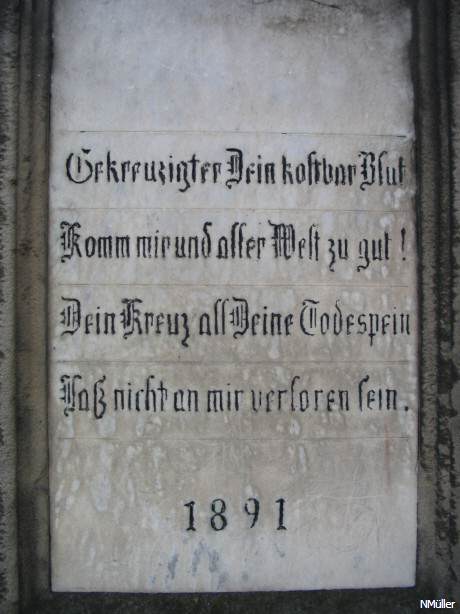 Gekreuzigter Dein kostbar Blut
Komm mir und aller Welt zu gut!
Dein Kreuz all Deine Todespein
Laß nicht an mir verloren sein.
1891
NMüller